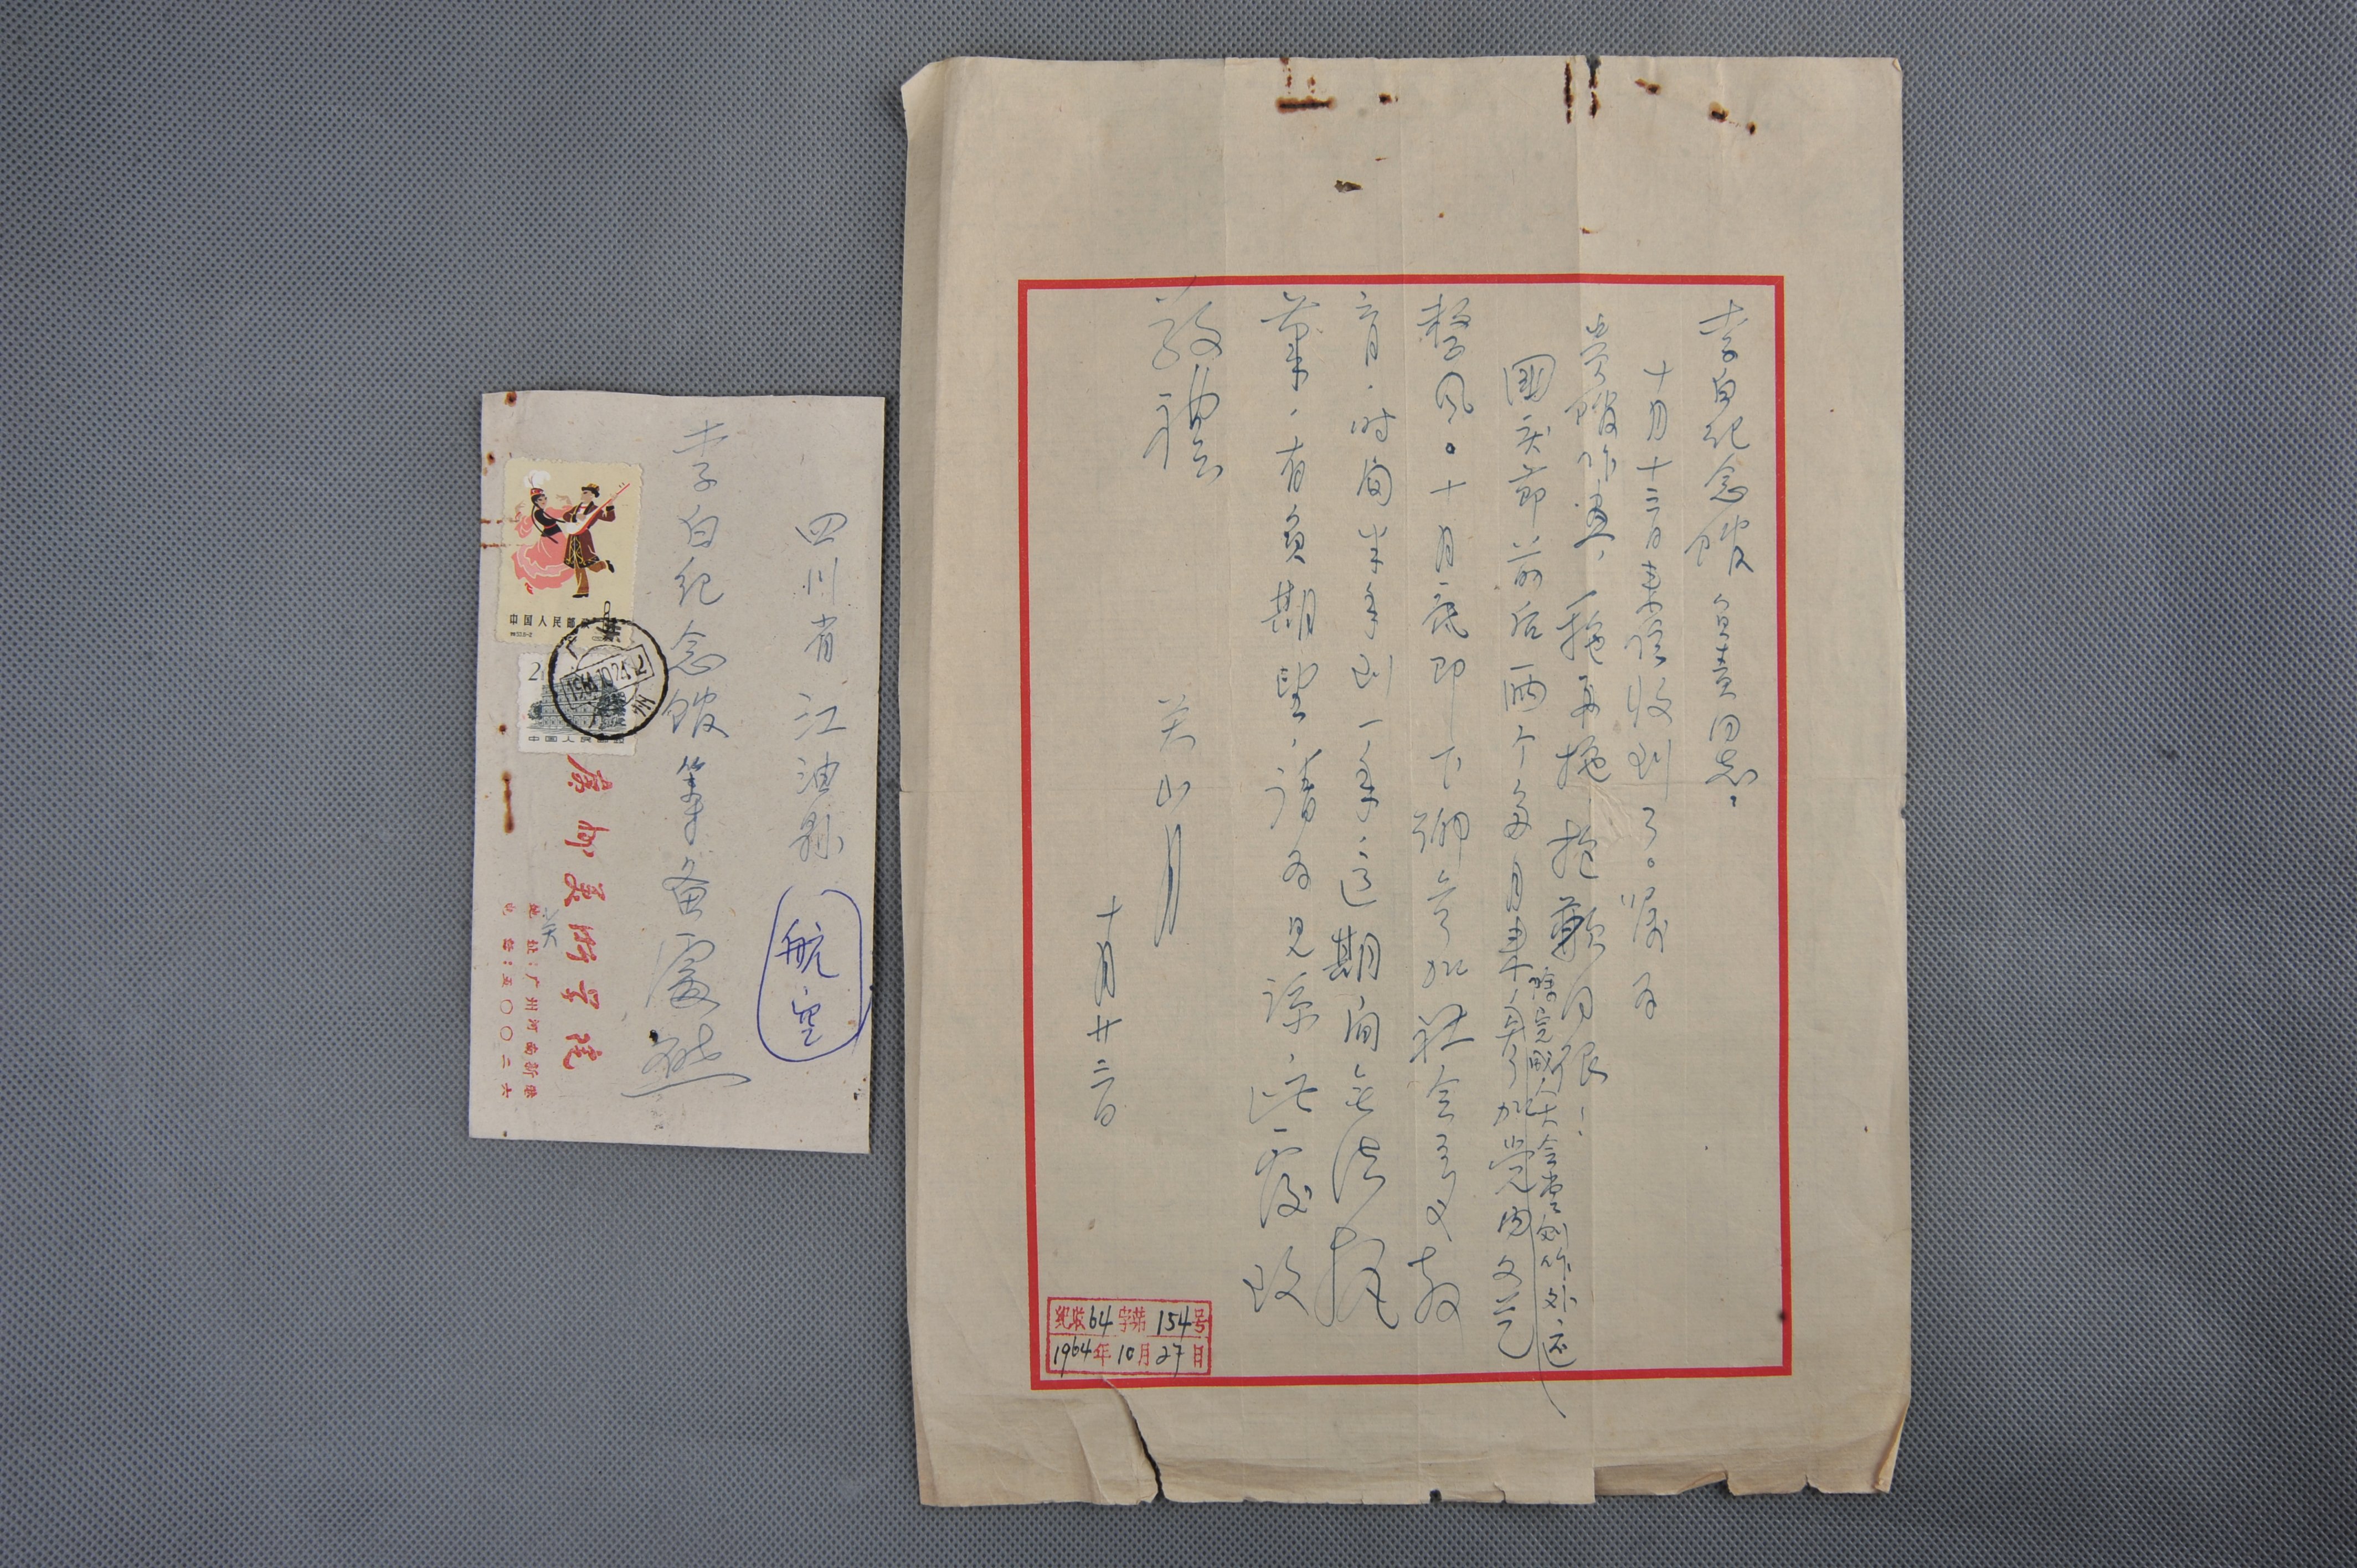 李白纪念馆负责同志：
十月十三日来信收到了。嘱为
贵馆作画、一拖再拖、抱歉同很！
国庆节前后两个多月来、
除完成人大会堂创作外、还
参加党内文艺
整风。十月底即下乡参加社会主义教
育、时间半年到一年、这期间无法执
笔、有负期望、请为见谅、此复 致
敬礼
关山月
十月廿二日
纪收64字第154号
1964年10月27日
四川省江油县
航空
李白纪念馆筹备处
广州美术学院
关
地址：广州河南新港
电话：五〇〇二六
中国人民邮政
中国人民邮政
广州
1964.10.24.12